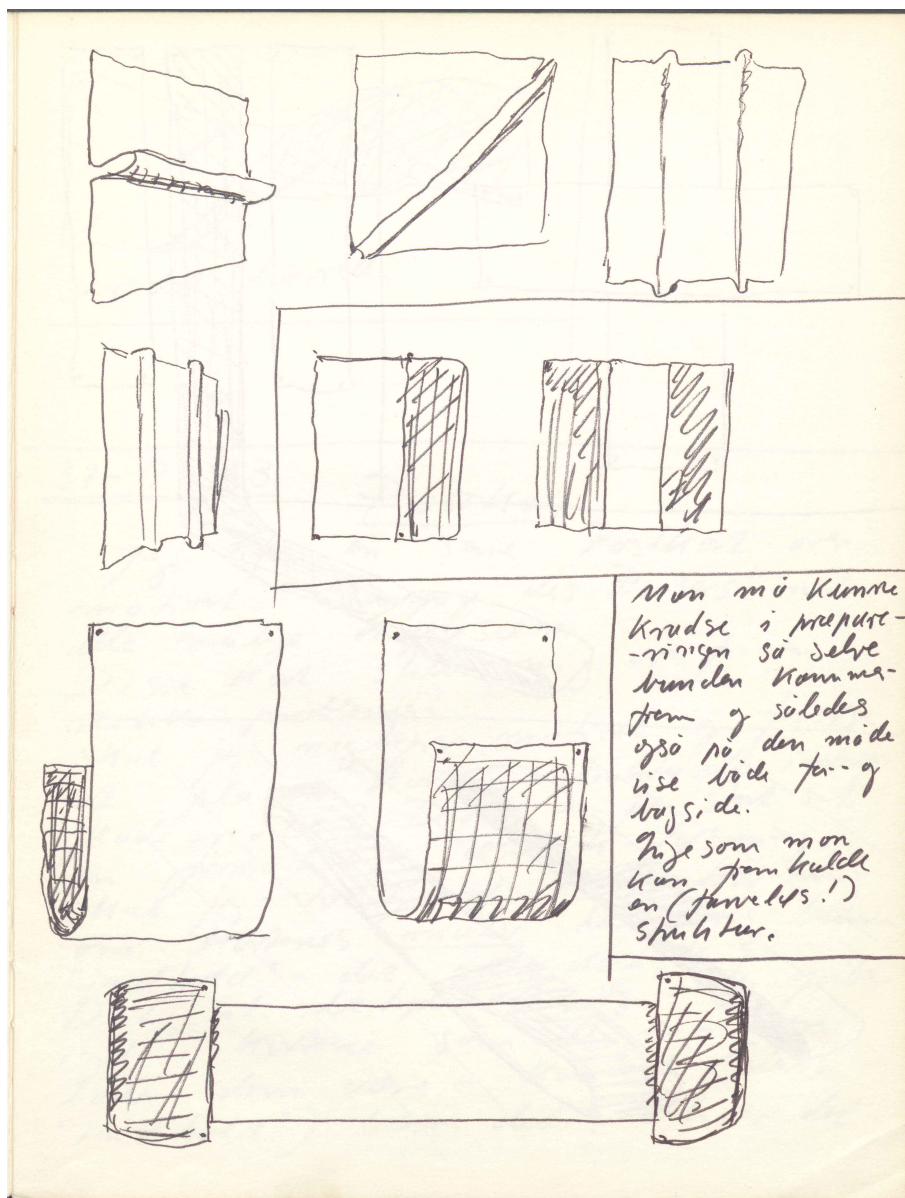 Man må kunne
kradse i præpare-
-ringen så selve
bunden kommer
frem og således
også på den måde
vise både for- og
bagside.
Ligesom man
kan fremkalde
en (farveløs!)
struktur.